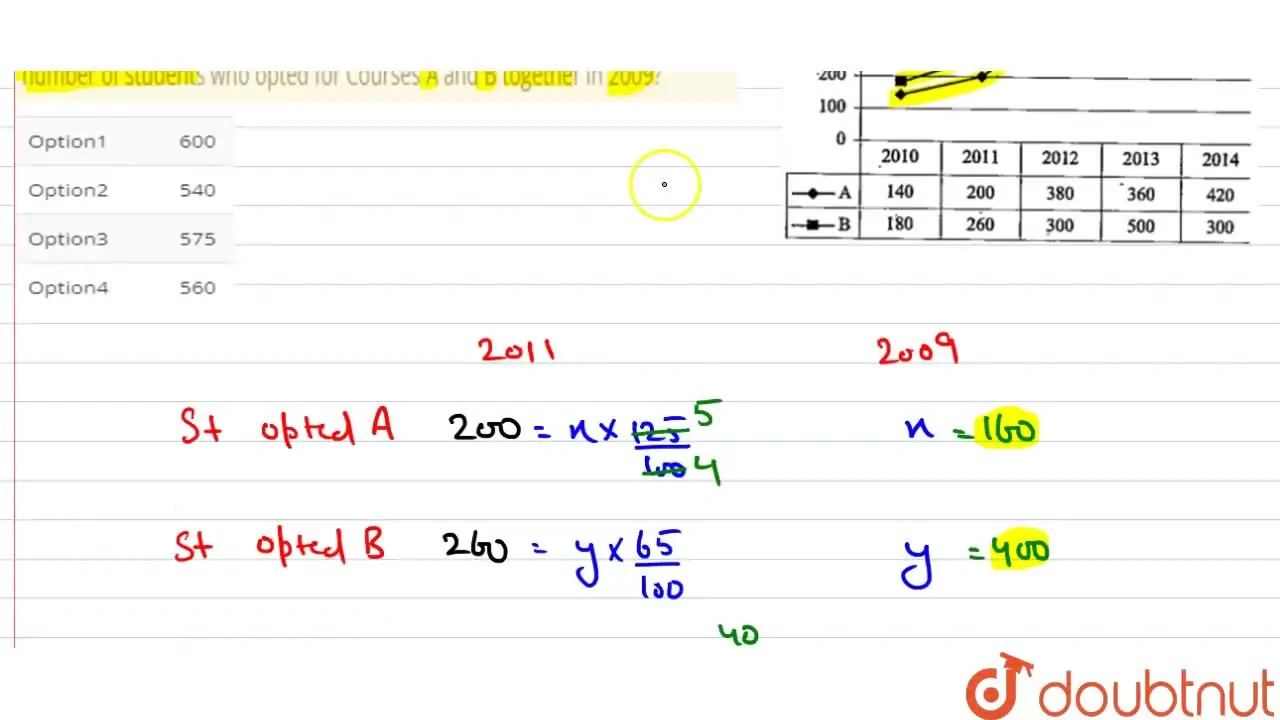 number of students who opted for Courses A and B together in 2009?
Option1 600
Option2 540
Option3 575
Option4 560
200
100
0
2010 2011 2012 2013 2014
A 140 200 380 360 420
B 180 260 300 500 300
2011 2009
St opted A 200 = x × 125/100 5/4 x = 160
St opted B 260 = y × 65/100 y = 400
40
doubtnut